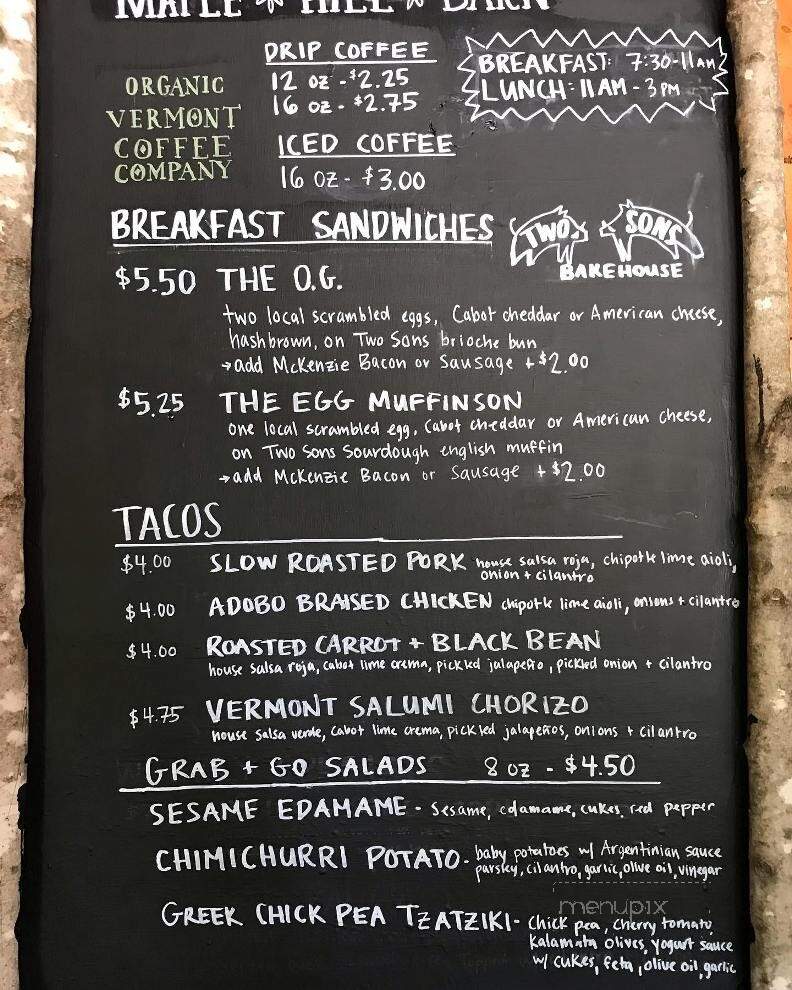 MAPLE HILL BARN
DRIP COFFEE
12 oz - $2.25
16 oz - $2.75
BREAKFAST: 7:30-11am
LUNCH: 11AM - 3PM
ORGANIC
VERMONT
COFFEE
COMPANY
ICED COFFEE
16 OZ - $3.00
BREAKFAST SANDWICHES
TWO SONS
BAKEHOUSE
$5.50 THE O.G.
two local scrambled eggs, Cabot cheddar or American cheese,
hashbrown, on Two Sons brioche bun
→add McKenzie Bacon or Sausage +$2.00
$5.25 THE EGG MUFFINSON
one local scrambled egg, Cabot cheddar or American cheese,
on Two Sons Sourdough english muffin
→add McKenzie Bacon or Sausage +$2.00
TACOS
$4.00 SLOW ROASTED PORK house salsa roja, chipotle lime aioli,
onion + cilantro
$4.00 ADOBO BRAISED CHICKEN chipotle lime aioli, onions + cilantro
$4.00 ROASTED CARROT + BLACK BEAN
house salsa roja, cabot lime crema, pickled jalapeño, pickled onion + cilantro
$4.75 VERMONT SALUMI CHORIZO
house salsa verde, Cabot lime crema, pickled jalapeños, onions + cilantro
GRAB + GO SALADS 8 oz - $4.50
SESAME EDAMAME - Sesame, edamame, cukes, red pepper
CHIMICHURRI POTATO - baby potatoes w/ Argentinian sauce
parsley, cilantro, garlic, olive oil, vinegar
GREEK CHICK PEA TZATZIKI - chick pea, cherry tomato,
Kalamata olives, yogurt sauce
w/ cukes, feta, olive oil, garlic
menupix